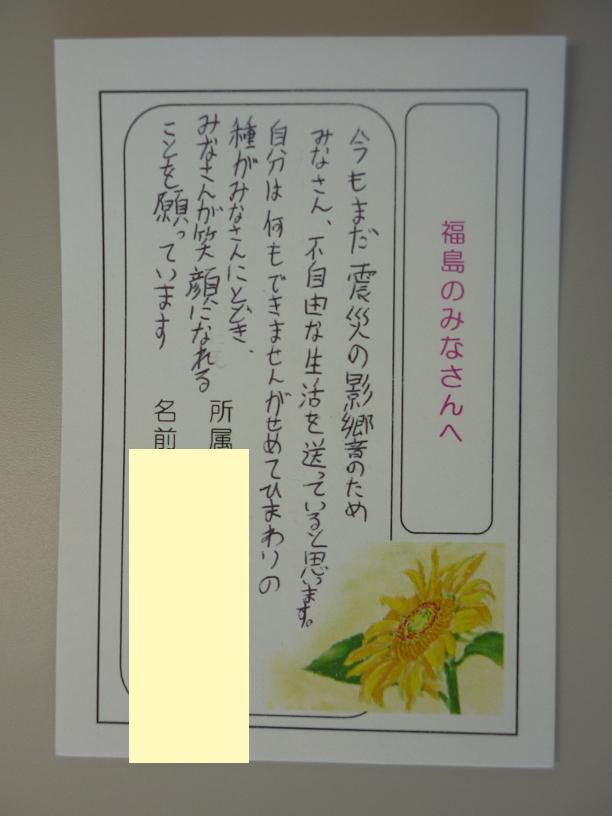 福島のみなさんへ
今もまだ震災の影響のため
みなさん、不自由な生活を送っていると思います。
自分は何もできませんがせめてひまわりの
種がみなさんにとどき、
みなさんが笑顔になれる
ことを願っています
所属
名前